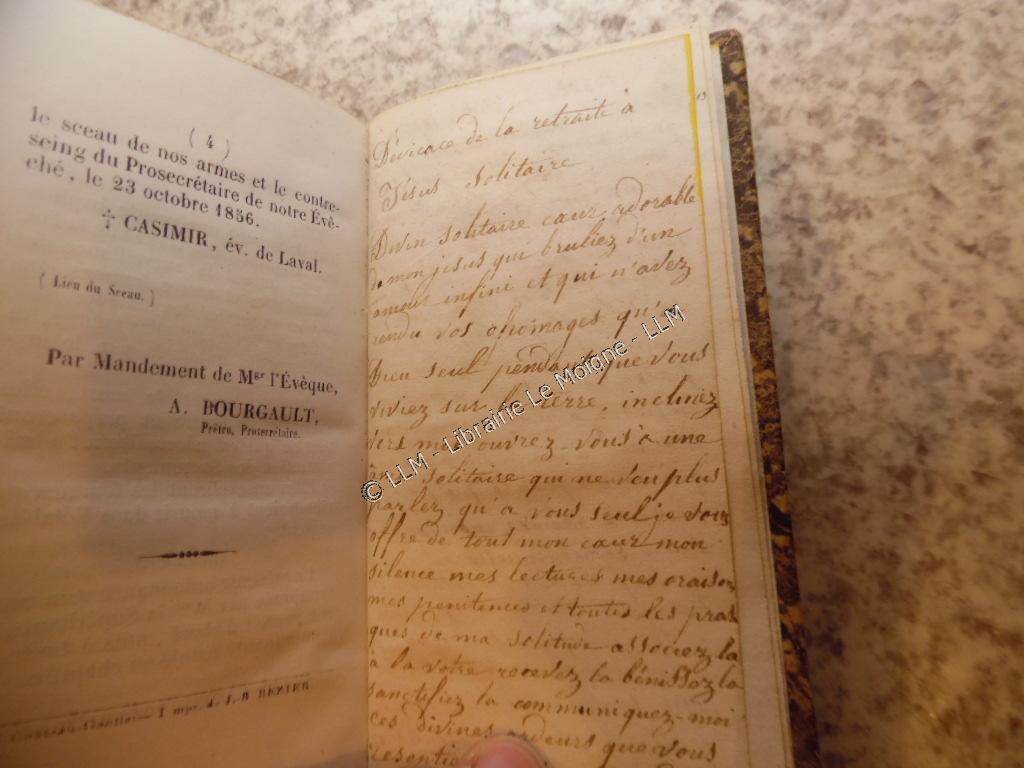 ( 4 )
le sceau de nos armes et le contre-
seing du Prosecrétaire de notre Évê-
ché, le 23 octobre 1856.
† CASIMIR, év. de Laval.
( Lieu du Sceau. )
Par Mandement de Mgr l'Évêque,
A. BOURGAULT,
Prêtre, Prosecrétaire.
Impr. de J.-B BEZIER.
13
Dévicace de la retraite à
Jésus solitaire
Divin solitaire cœur adorable
de mon jesus qui bruliez d'un
amour infini et qui n'avez
rendu vos ohomages qu'a
Dieu seul pendant que vous
viviez sur la terre, inclinez
vers moi ouvrez-vous a une
âme solitaire qui ne veu plus
parlez qu'a vous seul je vous
offre de tout mon cœur mon
silence mes lectures mes oraisons
mes penitences et toutes les prati
ques de ma solitude associez la
à la votre recevez la bénissez la
sanctifiez la communiquez-moi
ces divines ardeurs que vous
© LLM - Librairie Le Moigne - LLM